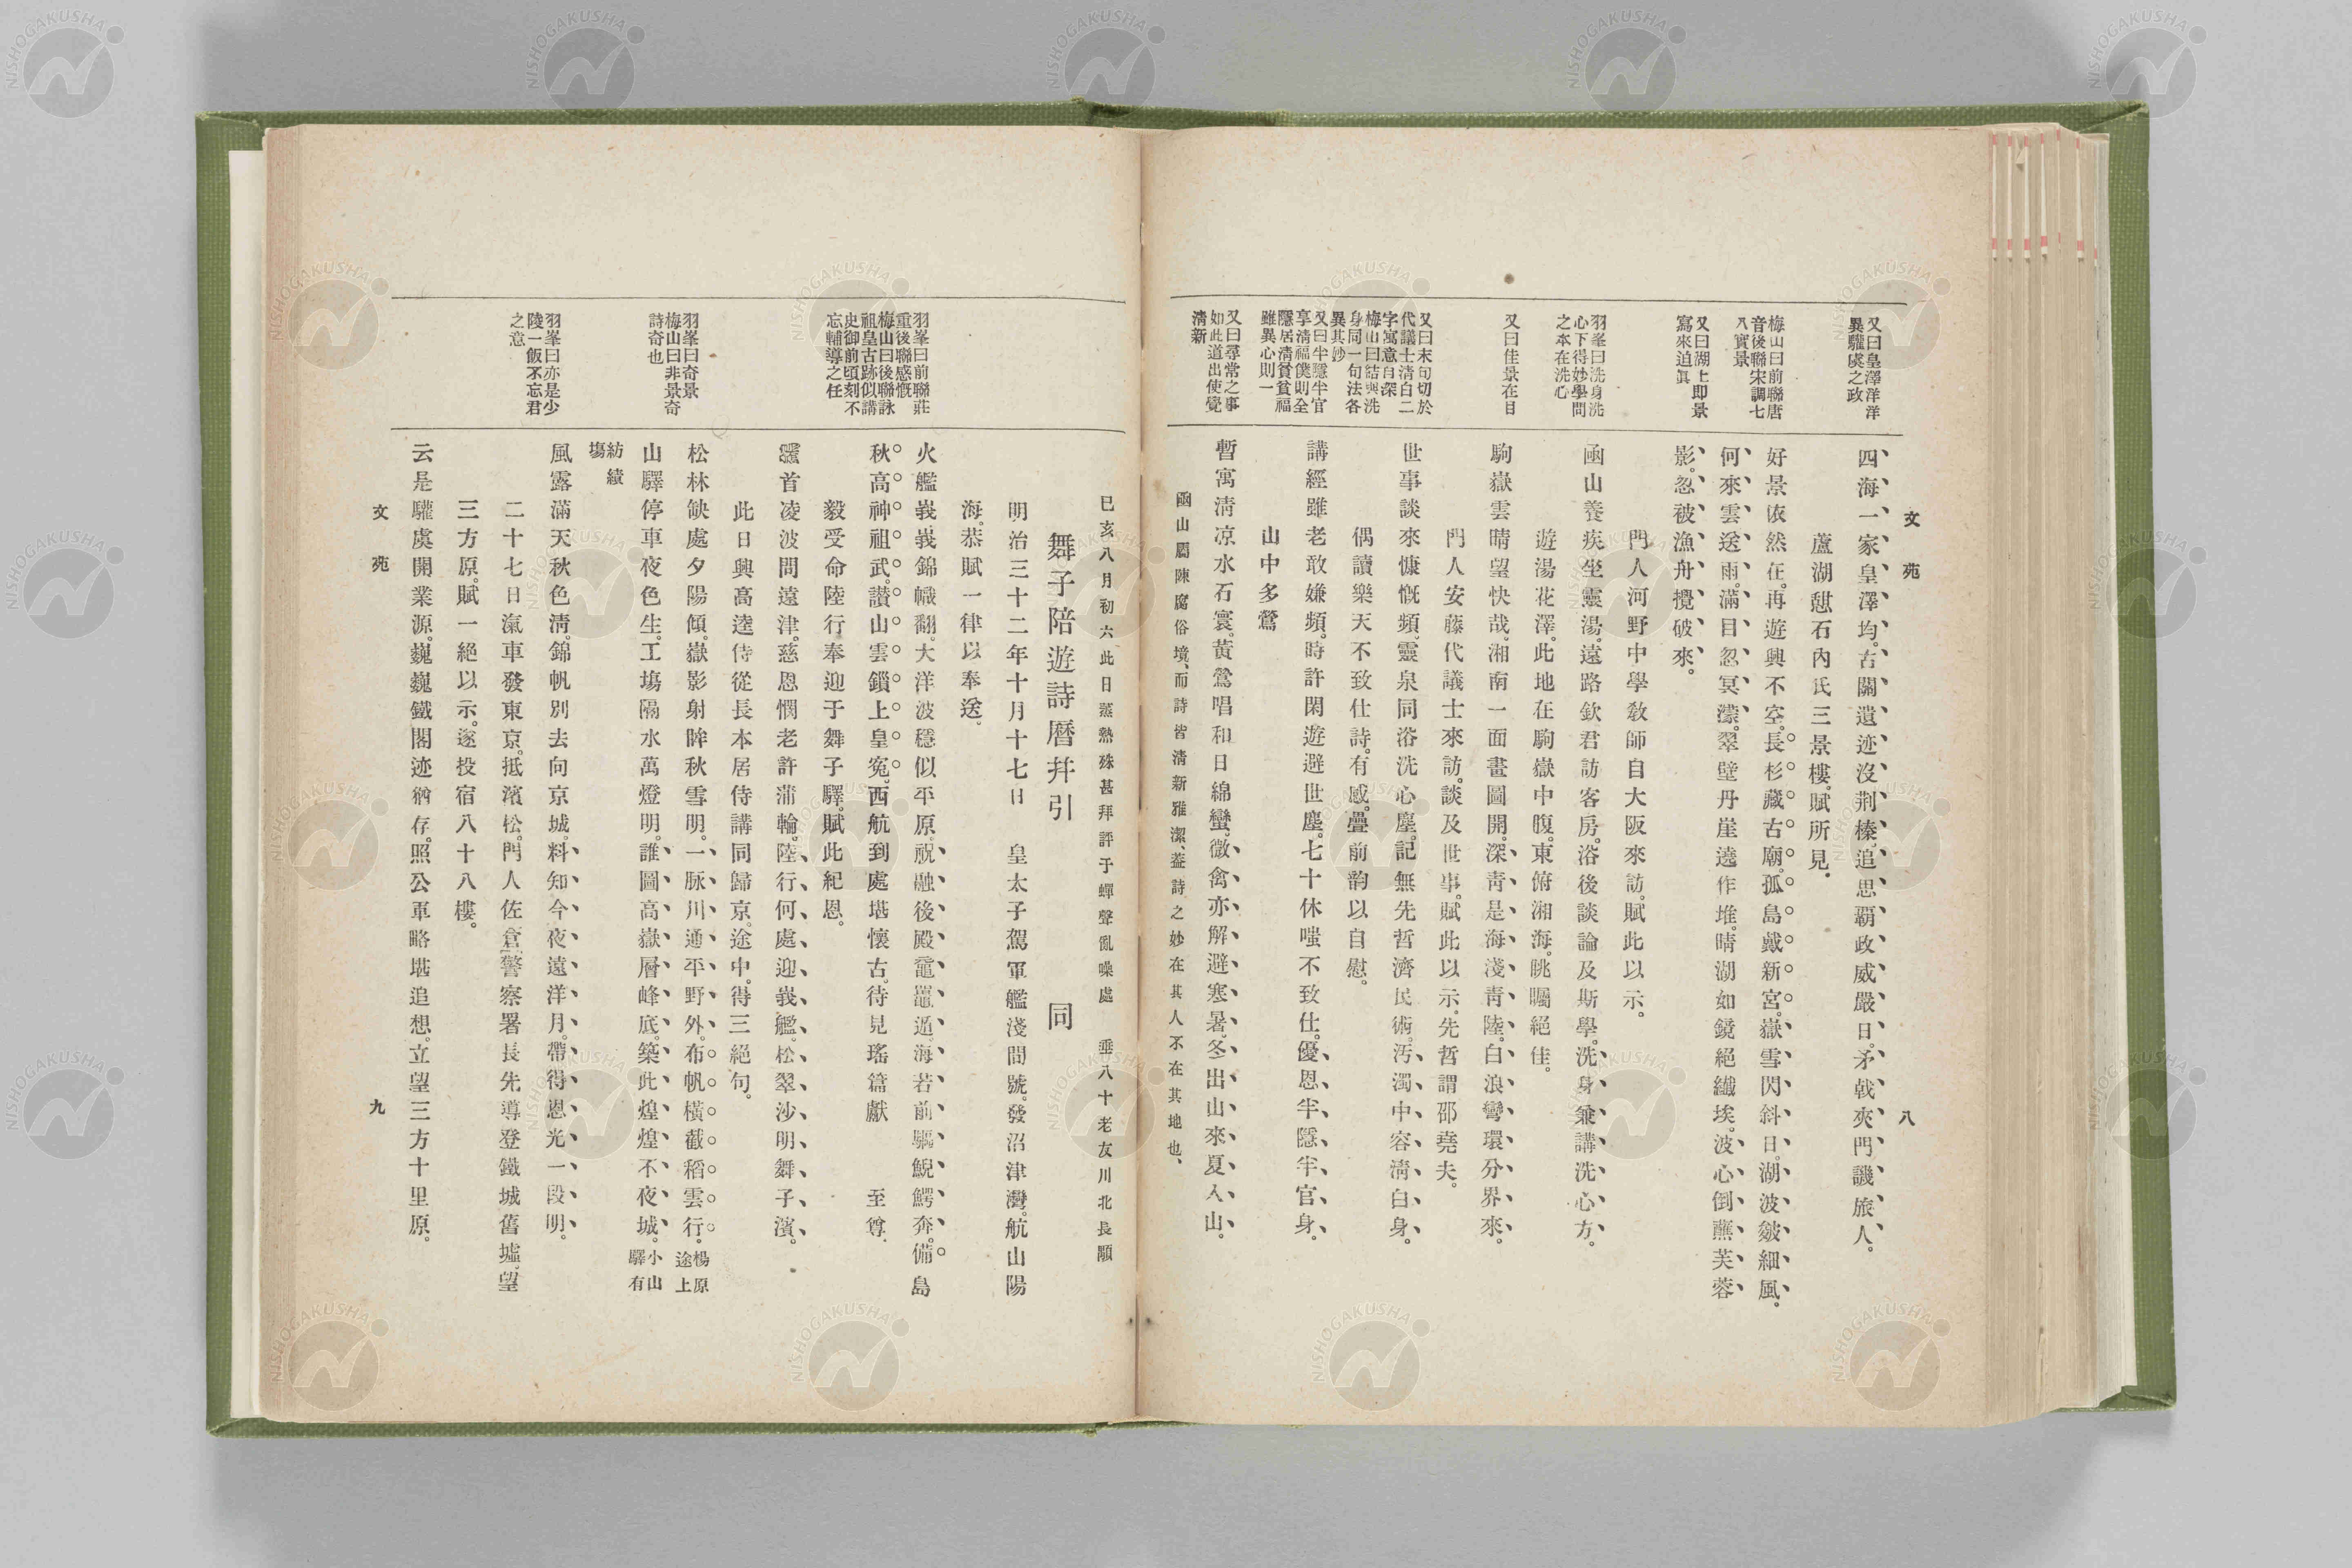 文苑
八
又曰皇澤洋洋
異驩虞之政
梅山曰前聯唐
音後聯宋調七
八實景
又曰湖上即景
寫來迫眞
羽峯曰洗身洗
心下得妙學問
之本在洗心
又曰佳景在目
又曰末句切於
代議士清白二
字寓意自深
梅山曰結與洗
身同一句法各
異其妙
又曰半隱半官
享清福僕則全
隱居清貧貧福
雖異心則一
又曰尋常之事
如此道出使覺
清新
四海一家皇澤均。古關遺迹沒荆榛。追思覇政威嚴日。矛戟夾門譏旅人。
蘆湖憇石內氏三景樓。賦所見。
好景依然在。再遊興不空。長杉藏古廟。孤島戴新宮。嶽雪閃斜日。湖波皴細風。
何來雲送雨。滿目忽冥濛。翠壁丹崖遶作堆。晴湖如鏡絕纎埃。波心倒蘸芙蓉
影。忽被漁舟攪破來。
門人河野中學敎師自大阪來訪。賦此以示。
凾山養疾坐靈湯。遠路欽君訪客房。浴後談論及斯學。洗身兼講洗心方。
遊湯花澤。此地在駒嶽中腹。東俯湘海。眺矚絕佳。
駒嶽雲晴望快哉。湘南一面畫圖開。深靑是海淺靑陸。白浪彎環分界來。
門人安藤代議士來訪。談及世事。賦此以示。先哲謂邵堯夫。
世事談來慷慨頻。靈泉同浴洗心塵。記無先哲濟民術。汚濁中容淸白身。
偶讀樂天不致仕詩。有感。疊前韵以自慰。
講經雖老敢嫌頻。時許閑遊避世塵。七十休嗤不致仕。優恩半隱半官身。
山中多鶯
暫寓淸凉水石寰。黃鶯唱和日綿蠻。微禽亦解避塞暑。冬出山來夏入山。
凾山屬陳腐俗境、而詩皆淸新雅潔、蓋詩之妙在其人不在其地也、
己亥八月初六此日蒸熟殊甚拜評于蟬聲亂噪處　垂八十老友川北長顒
舞子陪遊詩曆幷引　同
明治三十二年十月十七日　皇太子駕軍艦淺間號。發沼津灣。航山陽
海。恭賦一律以奉送。
火艦峩峩錦幟翻。大洋波穩似平原。祝融後殿黿鼉遁。海若前驅鯢鰐奔。備島
秋高神祖武。讃山雲鎖上皇寃。西航到處堪懷古。待見瑤篇獻　至尊。
毅受命陸行奉迎于舞子驛。賦此紀恩。
鷁首凌波問遠津。慈恩憫老許蒲輪。陸行何處迎峩艦。松翠沙明舞子濱。
此日興高逵侍從長本居侍講同歸京。途中。得三絕句。
松林缺處夕陽傾。嶽影射眸秋雪明。一脈川通平野外。布帆橫截稻雲行。楊原途上
山驛停車夜色生。工塲隔水萬燈明。誰圖高嶽層峰底。築此煌煌不夜城。小山驛有
紡績塲
風露滿天秋色淸。錦帆別去向京城。料知今夜遠洋月。帶得恩光一段明。
二十七日滊車發東京。抵濱松。門人佐倉警察署長先導登鐵城舊墟。望
三方原。賦一絕以示。遂投宿八十八樓。
云是驩虞開業源。巍巍鐵閣迹猶存。照公軍略堪追想。立望三方十里原。
羽峯曰前聯莊
重後聯感慨
梅山曰後聯詠
祖皇古跡似講
史御前頃刻不
忘輔導之任
羽峯曰奇景
梅山曰非景奇
詩奇也
羽峯曰亦是少
陵一飯不忘君
之意
文苑
九
NISHOGAKUSHA